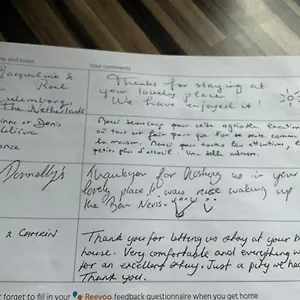 me and town
Your comments
Jacqueline &
Roel
The Netherlands
Thanks for staying at
your lovely place
We have enjoyed it!
Denis
ance
Merci beaucoup pour cette agréable
où tout est fait pour que l'on se sente comme
la maison. Merci pour toutes les attentions,
petit plus d'accueil. Une belle adresse.
Donnelly's
Thankyou for us in your
lovely place it was nice waking up
the Ben Nevis.
Thank you for letting us stay at your b
house. Very comfortable and everything w
for an excellent stay. Just a pity we had
Thank you.
forget to fill in your Reevoo feedback questionnaire when you get home